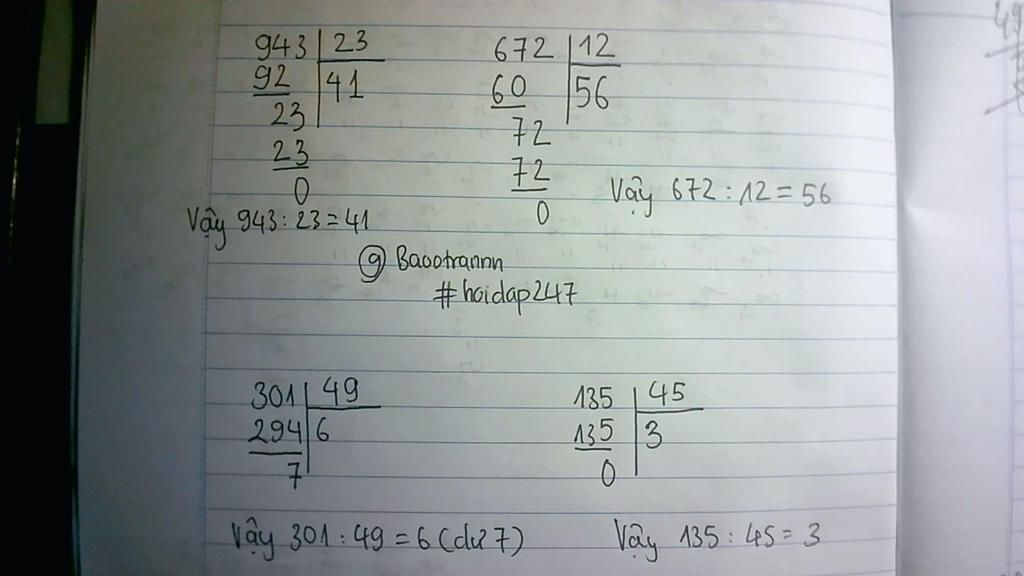 943 23
92 41
23
23
0
Vậy 943 : 23 = 41
672 12
60 56
72
72
0
Vậy 672 : 12 = 56
9 Baootrannn
#hoidap247
301 49
294 6
7
Vậy 301 : 49 = 6 (dư 7)
135 45
135 3
0
Vậy 135 : 45 = 3